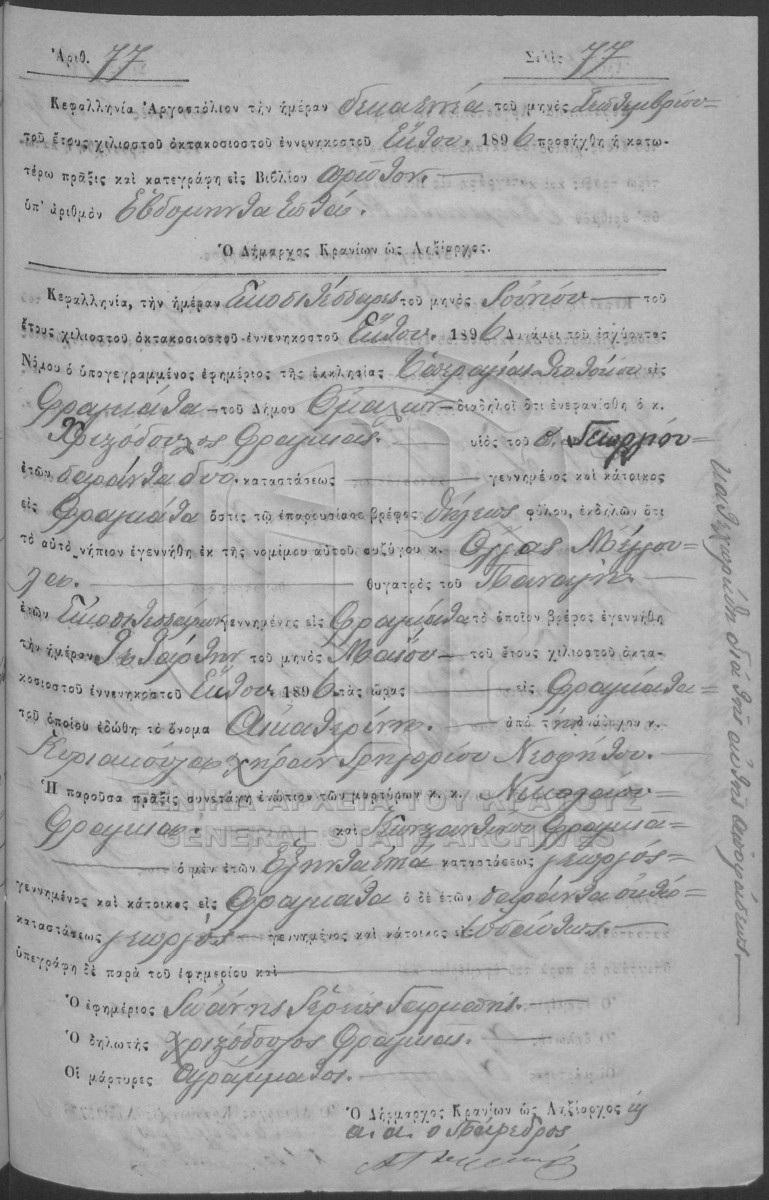 Ἀριθ. 77 Σελὶς 77
Κεφαλληνία Ἀργοστόλιον τὴν ἡμέραν δεκαεννέα τοῦ μηνὸς Σεπτεμβρίου
τοῦ ἔτους χιλιοστοῦ ὀκτακοσιοστοῦ ἐννενηκοστοῦ Ἕκτου. 1896 προσήχθη ἡ κατω-
τέρω πρᾶξις καὶ κατεγράφη εἰς Βιβλίον πρῶτον.
ὑπ' ἀριθμὸν Ἑβδομήντα ἑπτά.
Ὁ Δήμαρχος Κρανίων ὡς Ληξίαρχος.
Κεφαλληνία, τὴν ἡμέραν Εἰκοσιτέσσαρες τοῦ μηνὸς Ἰουνίου τοῦ
ἔτους χιλιοστοῦ ὀκτακοσιοστοῦ ἐννενηκοστοῦ Ἕκτου. 1896 Δυνάμει τοῦ ἰσχύοντος
Νόμου ὁ ὑπογεγραμμένος ἐφημέριος τῆς ἐκκλησίας Ὑπεραγίας Θεοτόκου εἰς
Φραγκάτα τοῦ Δήμου Ὁμαλῶν διαδηλοῖ ὅτι ἐνεφανίσθη ὁ κ.
Χριζόδουλος Φραγκιας. υἱὸς τοῦ Γεωργίου
ἐτῶν σαράντα δύο. καταστάσεως γεννημένος καὶ κάτοικος
εἰς Φραγκάτα ὅστις τῷ ἐπαρουσίασε βρέφος θήλεως φύλου, ἐκδηλῶν ὅτι
τὸ αὐτὸ νήπιον ἐγεννήθη ἐκ τῆς νομίμου αὐτοῦ συζύγου κ. Ὄλγας
θυγατρὸς τοῦ Παναγῆ.
ἐτῶν Εἰκοσιτεσσάρων γεννημένης εἰς Φραγκάτα τὸ ὁποῖον βρέφος ἐγεννήθη
τὴν ἡμέραν Τετάρτην τοῦ μηνὸς Μαΐου τοῦ ἔτους χιλιοστοῦ ὀκτα-
κοσιοστοῦ ἐννενηκοστοῦ Ἕκτου 1896 τὰς ὥρας εἰς Φραγκάτα
τοῦ ὁποίου ἐδώθη τὸ ὄνομα Αἰκατερίνη. ἀπὸ τὴν ἀνάδοχον κ.
Κυριακούλαν χήραν Γρηγορίου Νεοφύτου.
Ἡ παροῦσα πρᾶξις συνετάγη ἐνώπιον τῶν μαρτύρων κ. κ. Νικολάου
Φραγκια. καὶ Κωνσταντίνου Φραγκια
ὁ μὲν ἐτῶν Ἑξήντα ἑπτα καταστάσεως γεωργὸς
γεννημένος καὶ κάτοικος εἰς Φραγκάτα ὁ δὲ ἐτῶν σαράντα οκτώ
καταστάσεως γεωργὸς γεννημένος καὶ κάτοικος ὡσαύτως.
ὑπεγράφη δὲ παρὰ τοῦ ἐφημερίου καὶ
Ὁ ἐφημέριος Ἰωάννης Ἱερεὺς
Ὁ δηλωτὴς Χριζόδουλος Φραγκιας.
Οἱ μάρτυρες αγράμματος.
Ὁ Δήμαρχος Κρανίων ὡς Ληξίαρχος
α. α. ο Πάρεδρος
κατεχωρίσθη διὰ τῆς αὐτῆς ἀποφάσεως.
ΓΕΝΙΚΑ ΑΡΧΕΙΑ ΤΟΥ ΚΡΑΤΟΥΣ
GENERAL STATE ARCHIVES